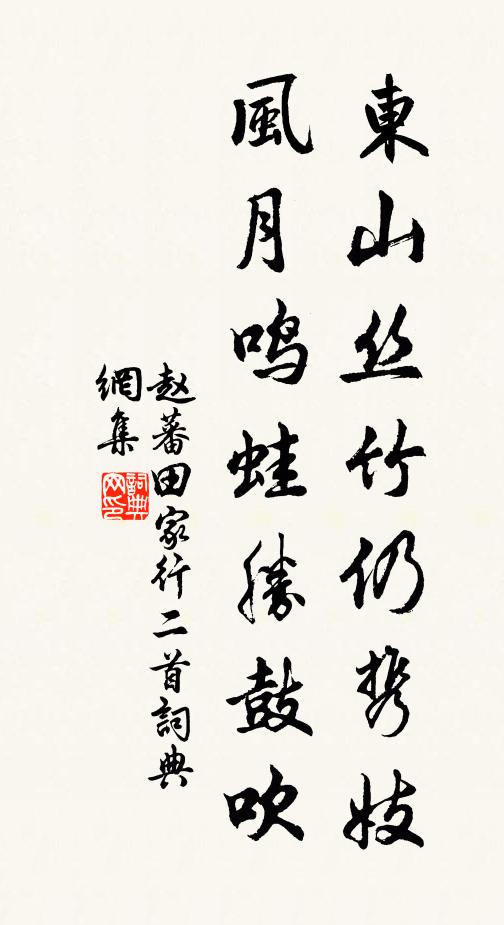 東山丝竹仍携妓
風月鸣蛙勝鼓吹
赵蕃田家行二首詞典
網集
詞典
网印